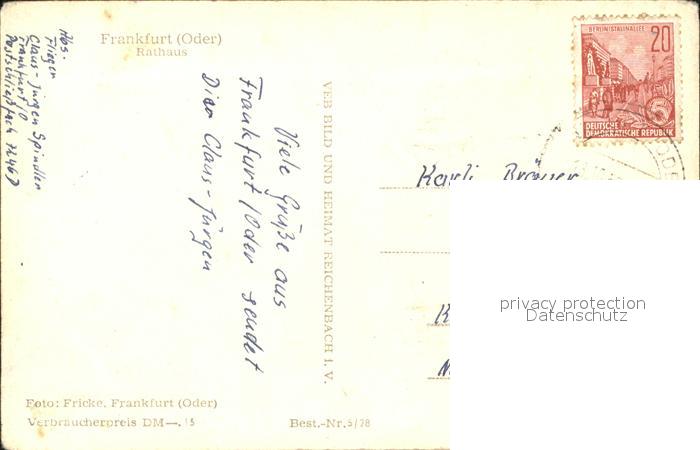 Abs.
Flieger
Claus-Jürgen Spindler
Frankfurt/O
Postschließfach 72467
Frankfurt (Oder)
Rathaus
Viele Grüße aus
Frankfurt/Oder sendet
Dir Claus-Jürgen
VEB BILD UND HEIMAT REICHENBACH I. V.
BERLIN STALINALLEE
20
5
DEUTSCHE
DEMOKRATISCHE REPUBLIK
Karli
K
privacy protection
Datenschutz
Foto: Fricke, Frankfurt (Oder)
Verbraucherpreis DM —.15
Best.-Nr. 5/78